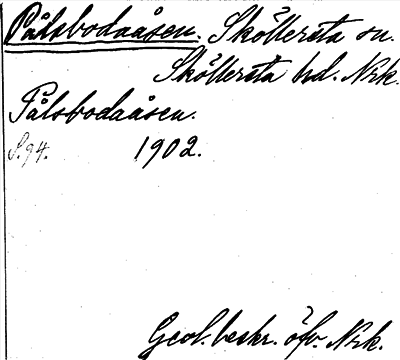 Pålsbodaåsen. Sköllersta sn.
Sköllersta hd. Nrk.
Pålsbodaåsen.
S. 94. 1902.
Geol. beskr. öfv. Nrk.